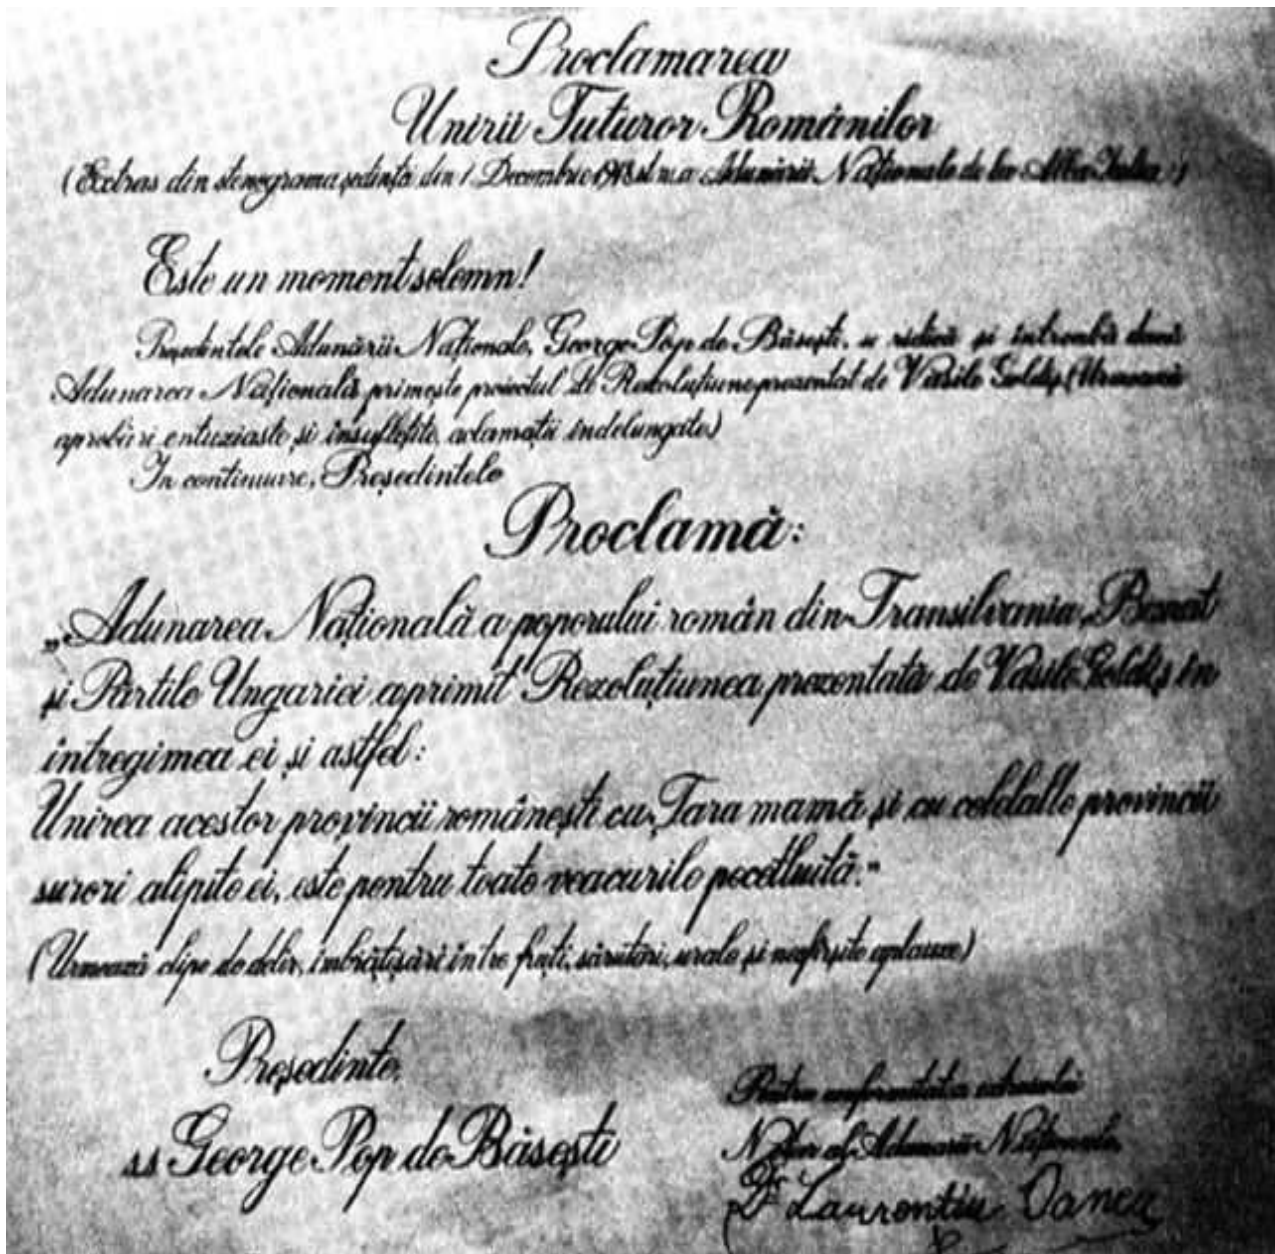 Proclamarea
Unirii Tuturor Românilor
(Extras din stenograma ședință din 1 Decembrie 1918 st.n. a Adunării Naționale de la Alba Iulia)
Este un moment solemn!
Președintele Adunării Naționale, George Pop de Băsești, se ridică și întreabă dacă
Adunarea Națională primește proiectul de Rezoluțiune prezentat de Vasile Goldiș. (Urmează
aprobări entuziaste și însuflețite, aclamații îndelungate)
In continuare, Președintele
Proclamă:
„Adunarea Națională a poporului român din Transilvania, Banat
și Părtile Ungariei a primit Rezoluțiunea prezentată de Vasile Goldiș în
întregimea ei și astfel:
Unirea acestor provincii românești cu Țara mamă și cu celelalte provincii
surori alipite ei, este pentru toate veacurile pecetluită."
(Urmează clipe de delir, îmbrățișări între frați, sărutări, urale și nesfîrșite aplauze)
Președinte,
ss George Pop de Băsești
Pentru conformitatea extrasului
Notar al Adunării Naționale,
Dr Laurențiu Oanea